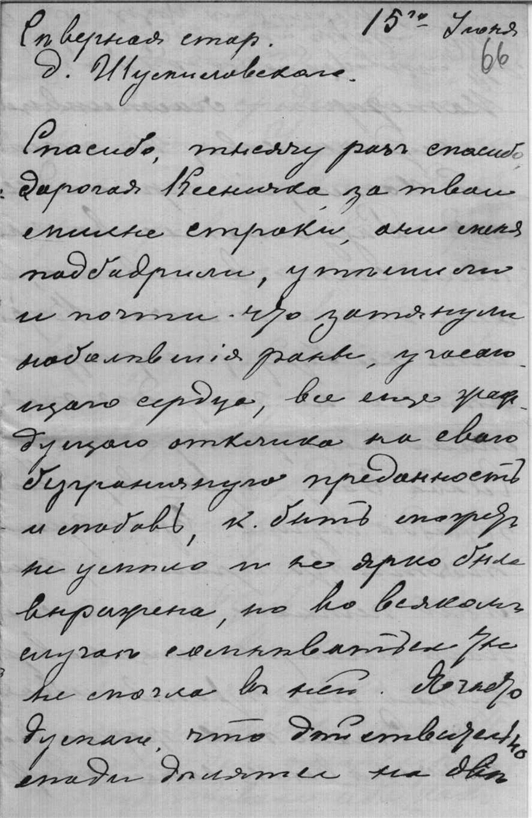 15го Iюня
66
Сѣверная стор.
д. Шусмиловскаго.
Спасибо, тысячу разъ спасибо,
дорогая Ксеничка, за твои
милые строки, они меня
подбодрили, утѣшили
и почти что затянули
наболѣвшія раны, угасаю-
щаго сердца, все еще жаж-
дущаго отклика на свою
безграничную преданность
и любовь, к. быть можетъ
не умѣло и не ярко была
выражена, но во всякомъ
случаѣ сомнѣваться ты
не могла въ ней. Я часто
думаю, что дѣйствительно
люди дѣлятся на двѣ